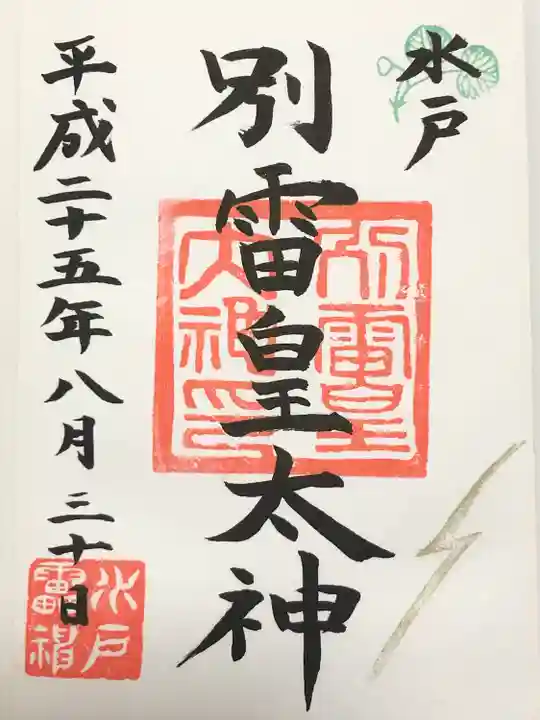 水戸
別雷皇太神
別雷皇
太神印
平成二十五年八月三十日
水戸
雷神